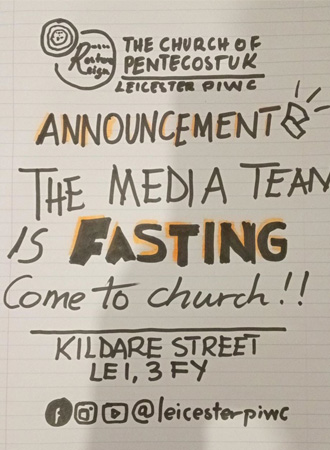 THE CHURCH OF
PENTECOST UK
LEICESTER PIWC
ANNOUNCEMENT
THE MEDIA TEAM
IS FASTING
Come to church!!
KILDARE STREET
LE1, 3FY
@leicesterpiwc